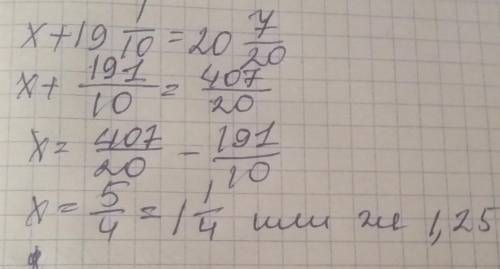 x + 19 1/10 = 20 7/20
x + 191/10 = 407/20
x = 407/20 - 191/10
x = 5/4 = 1 1/4 или же 1,25